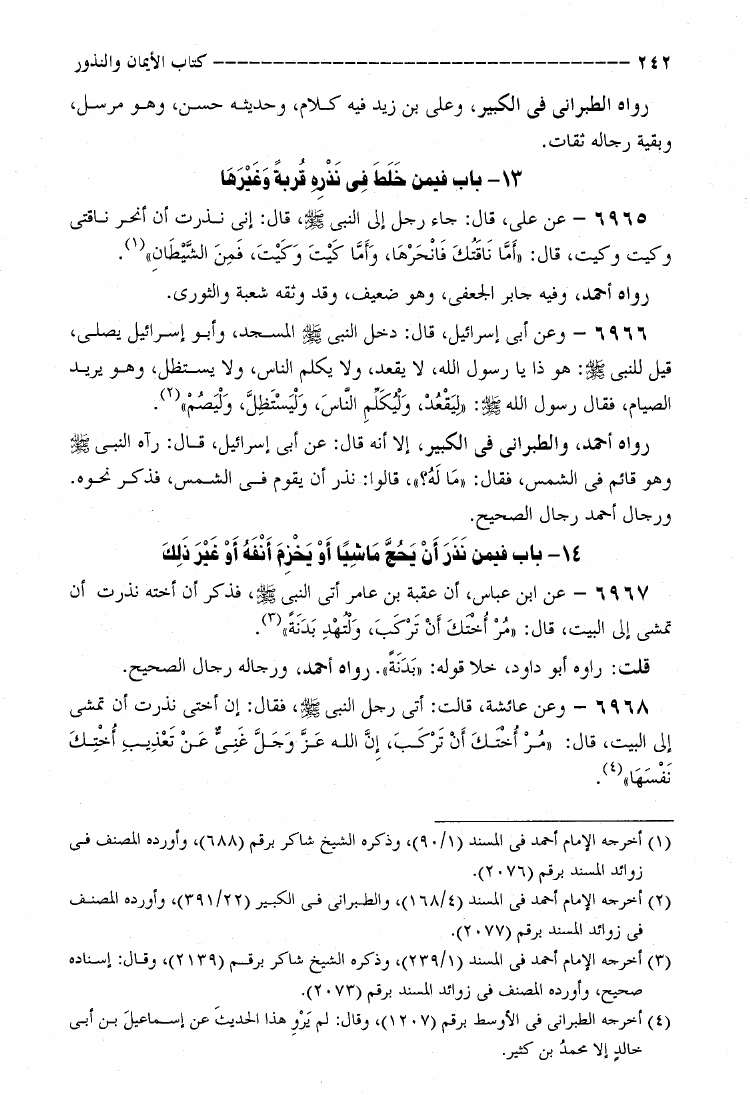 ٢٤٢ ---------------------------------- كتاب الأيمان والنذور
رواه الطبرانى فى الكبير، وعلى بن زيد فيه كلام، وحديثه حسن، وهو مرسل،
وبقية رجاله ثقات.
١٣- باب فيمن خَلَطَ فِى نَذْرِهِ قُربةً وَغَيْرَهَا
٦٩٦٥ – عن على، قال: جاء رجل إلى النبى ﷺ، قال: إنى نذرت أن أنحر ناقتى
وكيت وكيت، قال: «أَمَّا نَاقَتُكَ فَانْحَرْهَا، وَأَمَّا كَيْتَ وَكَيْتَ، فَمِنَ الشَّيْطَانِ»(١).
رواه أحمد، وفيه جابر الجعفى، وهو ضعيف، وقد وثقه شعبة والثورى.
٦٩٦٦ – وعن أبى إسرائيل، قال: دخل النبى ﷺ المسجد، وأبو إسرائيل يصلى،
قيل للنبى ﷺ: هو ذا يا رسول الله، لا يقعد، ولا يكلم الناس، ولا يستظل، وهو يريد
الصيام، فقال رسول الله ﷺ: «لِيَقْعُدْ، وَلْيُكَلِّمِ النَّاسَ، وَلْيَسْتَظِلَّ، وَلْيَصُمْ»(٢).
رواه أحمد، والطبرانى فى الكبير، إلا أنه قال: عن أبى إسرائيل، قال: رآه النبى ﷺ
وهو قائم فى الشمس، فقال: «مَا لَهُ؟»، قالوا: نذر أن يقوم فى الشمس، فذكر نحوه.
ورجال أحمد رجال الصحيح.
١٤- باب فيمن نَذَرَ أَنْ يَحُجَّ مَاشِيًا أَوْ يَخْزِمَ أَنْفَهُ أَوْ غَيْرَ ذَلِكَ
٦٩٦٧ – عن ابن عباس، أن عقبة بن عامر أتى النبى ﷺ، فذكر أن أخته نذرت أن
تمشى إلى البيت، قال: «مُرْ أُخْتَكَ أَنْ تَرْكَبَ، وَلْتُهْدِ بَدَنَةً»(٣).
قلت: راوه أبو داود، خلا قوله: «بَدَنَةً». رواه أحمد، ورجاله رجال الصحيح.
٦٩٦٨ – وعن عائشة، قالت: أتى رجل النبى ﷺ، فقال: إن أختى نذرت أن تمشى
إلى البيت، قال: «مُرْ أُخْتَكَ أَنْ تَرْكَبَ، إِنَّ اللهَ عَزَّ وَجَلَّ غَنِىٌّ عَنْ تَعْذِيبِ أُخْتِكَ
نَفْسَهَا»(٤).
(١) أخرجه الإمام أحمد فى المسند (٩٠/١)، وذكره الشيخ شاكر برقم (٦٨٨)، وأورده المصنف فى
زوائد المسند برقم (٢٠٧٦).
(٢) أخرجه الإمام أحمد فى المسند (١٦٨/٤)، والطبرانى فى الكبير (٣٩١/٢٢)، وأورده المصنف
فى زوائد المسند برقم (٢٠٧٧).
(٣) أخرجه الإمام أحمد فى المسند (٢٣٩/١)، وذكره الشيخ شاكر برقم (٢١٣٩)، وقال: إسناده
صحيح، وأورده المصنف فى زوائد المسند برقم (٢٠٧٣).
(٤) أخرجه الطبرانى فى الأوسط برقم (١٢٠٧)، وقال: لم يَرْوِ هذا الحديثَ عن إسماعيلَ بن أبى
خالدٍ إلا محمدُ بن كثير.